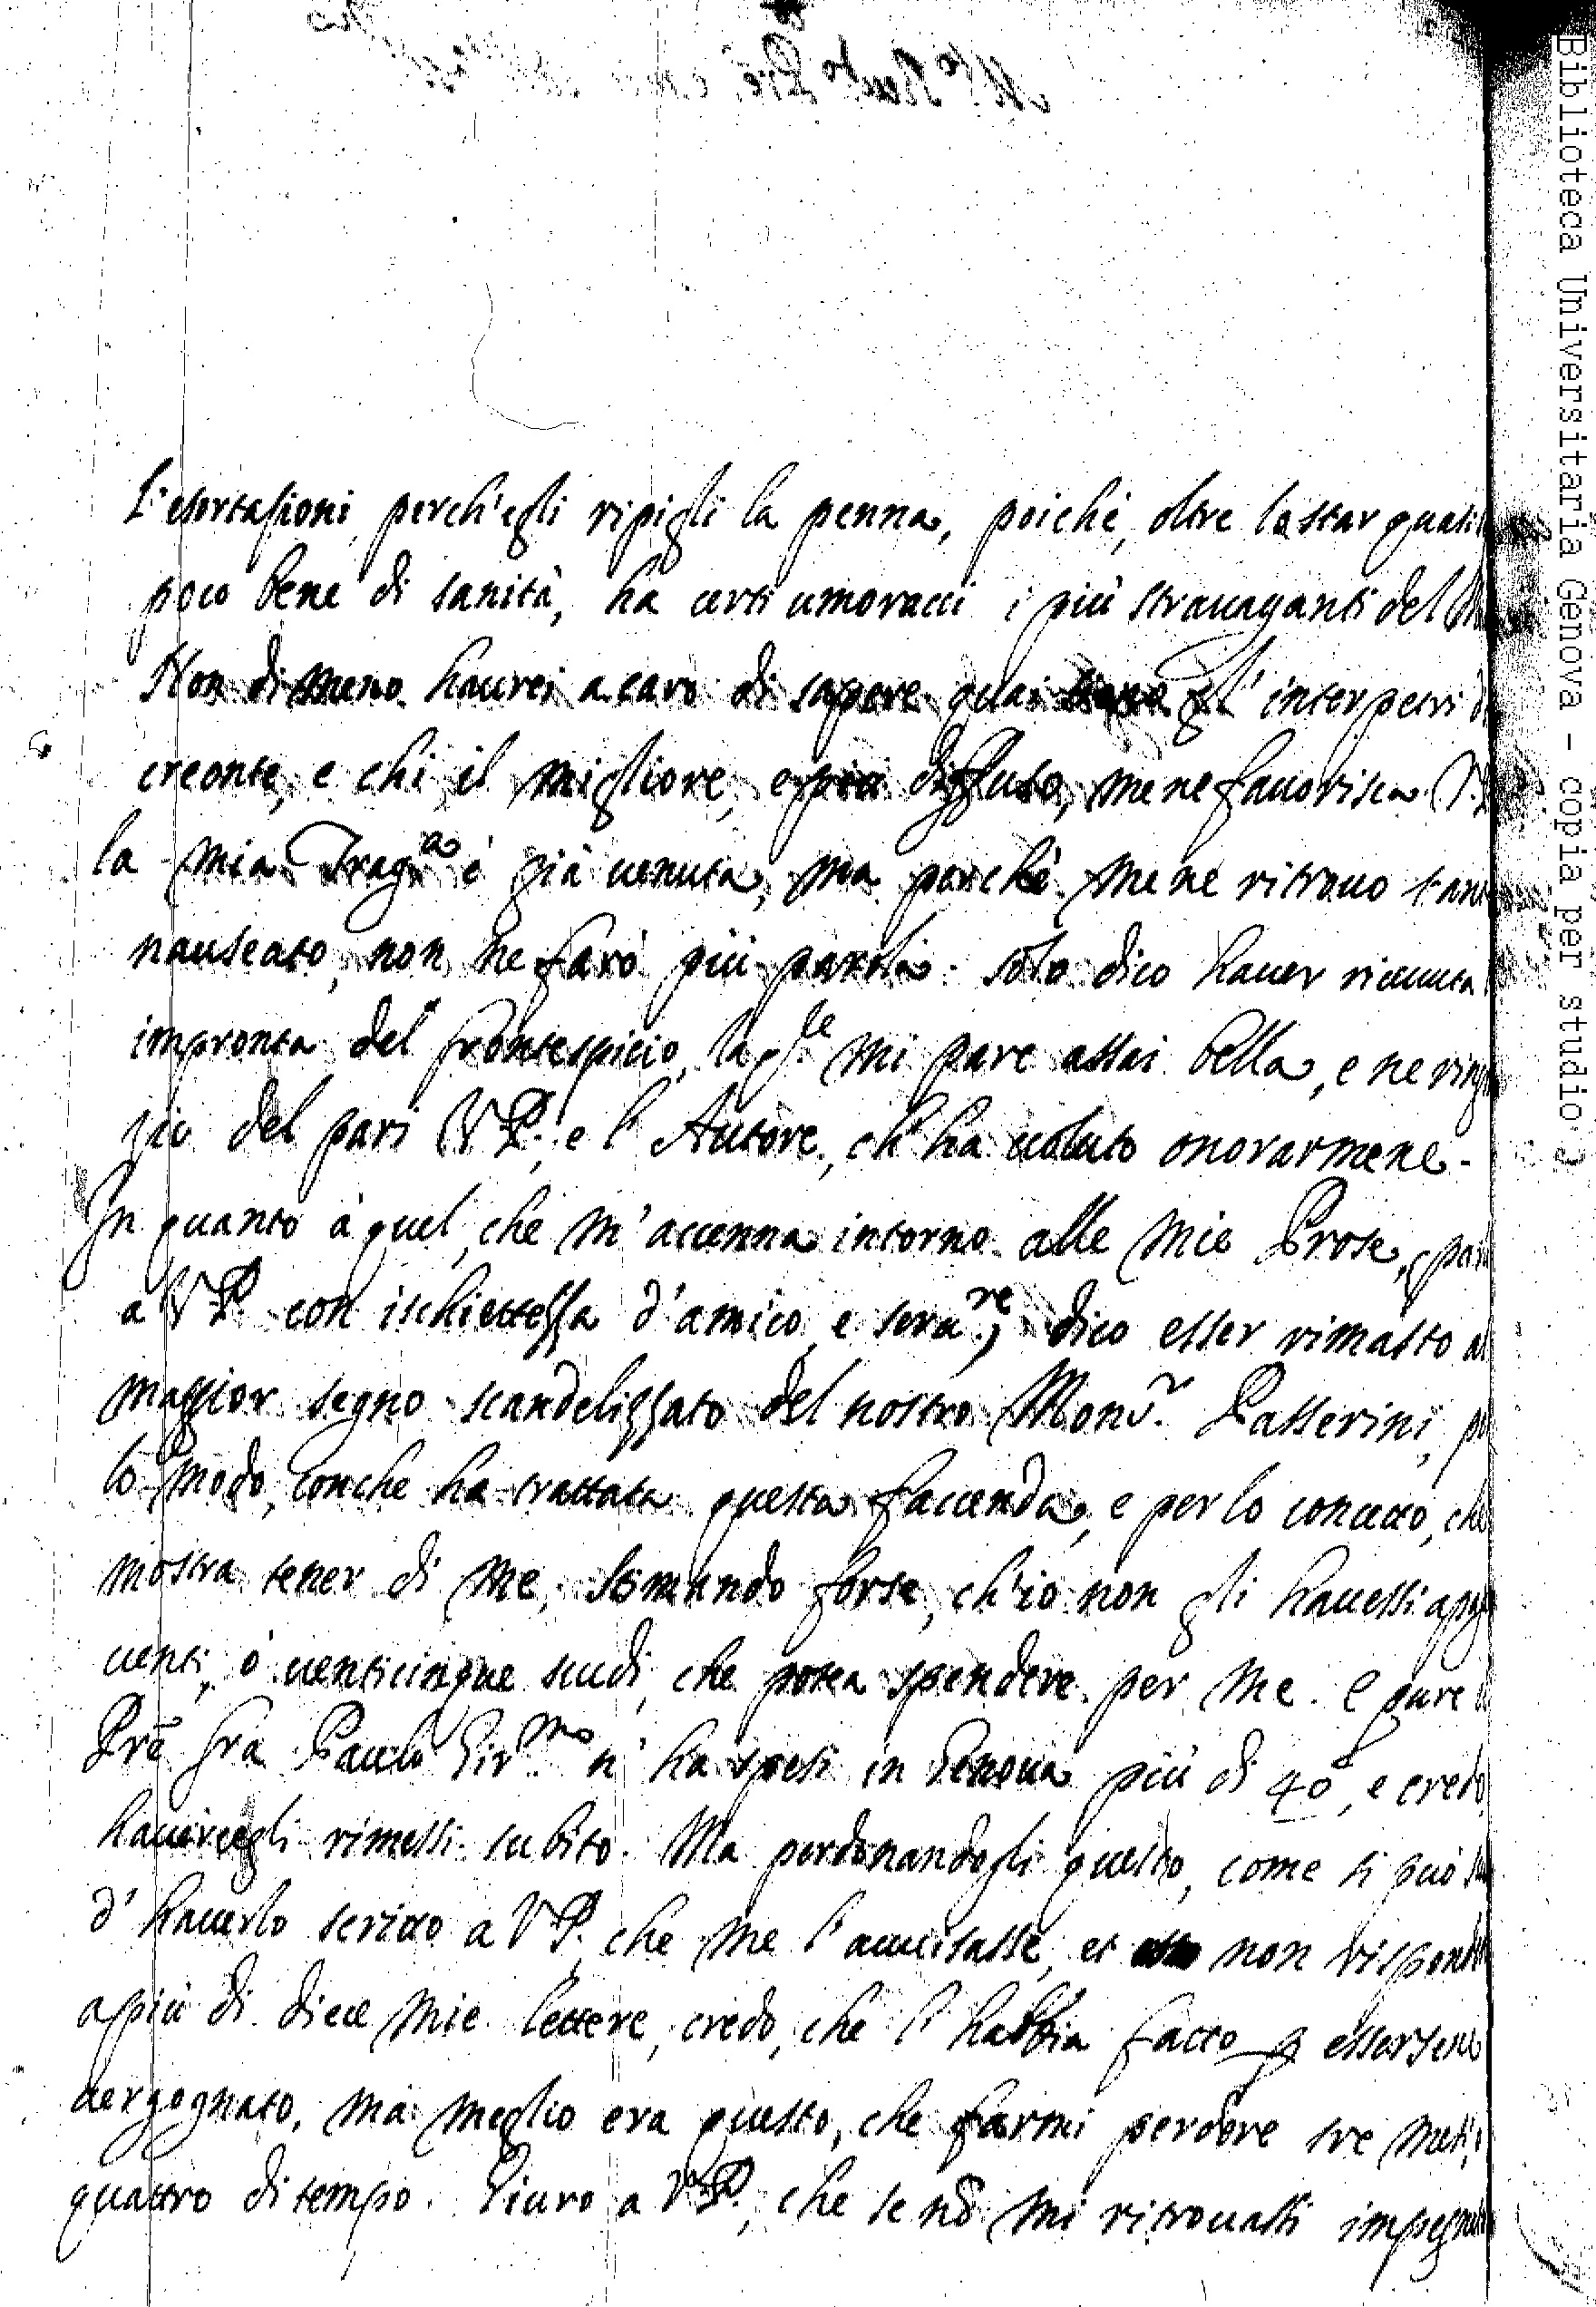 l'esortationi, perch'egli ripigli la penna, poichè, oltre lo star quasi
poco bene di sanità, ha certi umoracci i più stravaganti del
Non di meno haurei a caro di sapere quai siano gl'interpetri
creonte, e chi il migliore, e più diffuso, me ne favorisca V.
la mia Trag.a è già venuta, ma perchè me ne ritrovo tan
nauseato, non ne farò più parola. solo dico haver ricevuta
impronta del frontespicio, la q.le mi pare assai bella, e ne ringra
zio del pari V. P., e l'Autore, ch'ha voluto onorarmene.
In quanto à quel, che m'accenna intorno alle mie Prose,
a V. P. con ischiettezza d'amico, e ser.re, dico esser rimasto al
maggior segno scandelizzato del nostro Mons.r Passerini,
lo modo, con che ha trattata questa facenda, e per lo concetto, che
mostra tener di me, stimando forse, ch'io non gli havessi
venti, ò venticinque scudi, che potea spendere per me. e pure
Prē fra Paulo Gir.mo n'ha spesi in Genova più di 40, e credo
havercegli rimessi subito. Ma perdonandogli questo, come si può
d'haverlo scritto a V. P. che me l'avvisasse, et non
a più di diece mie lettere, credo, che l'habbia fatto p essersene
vergognato, ma meglio era questo, che farmi perdere tre mesi,
quattro di tempo. Giuro a V. P., che se nō mi ritrovassi
Biblioteca Universitaria Genova - copia per studio